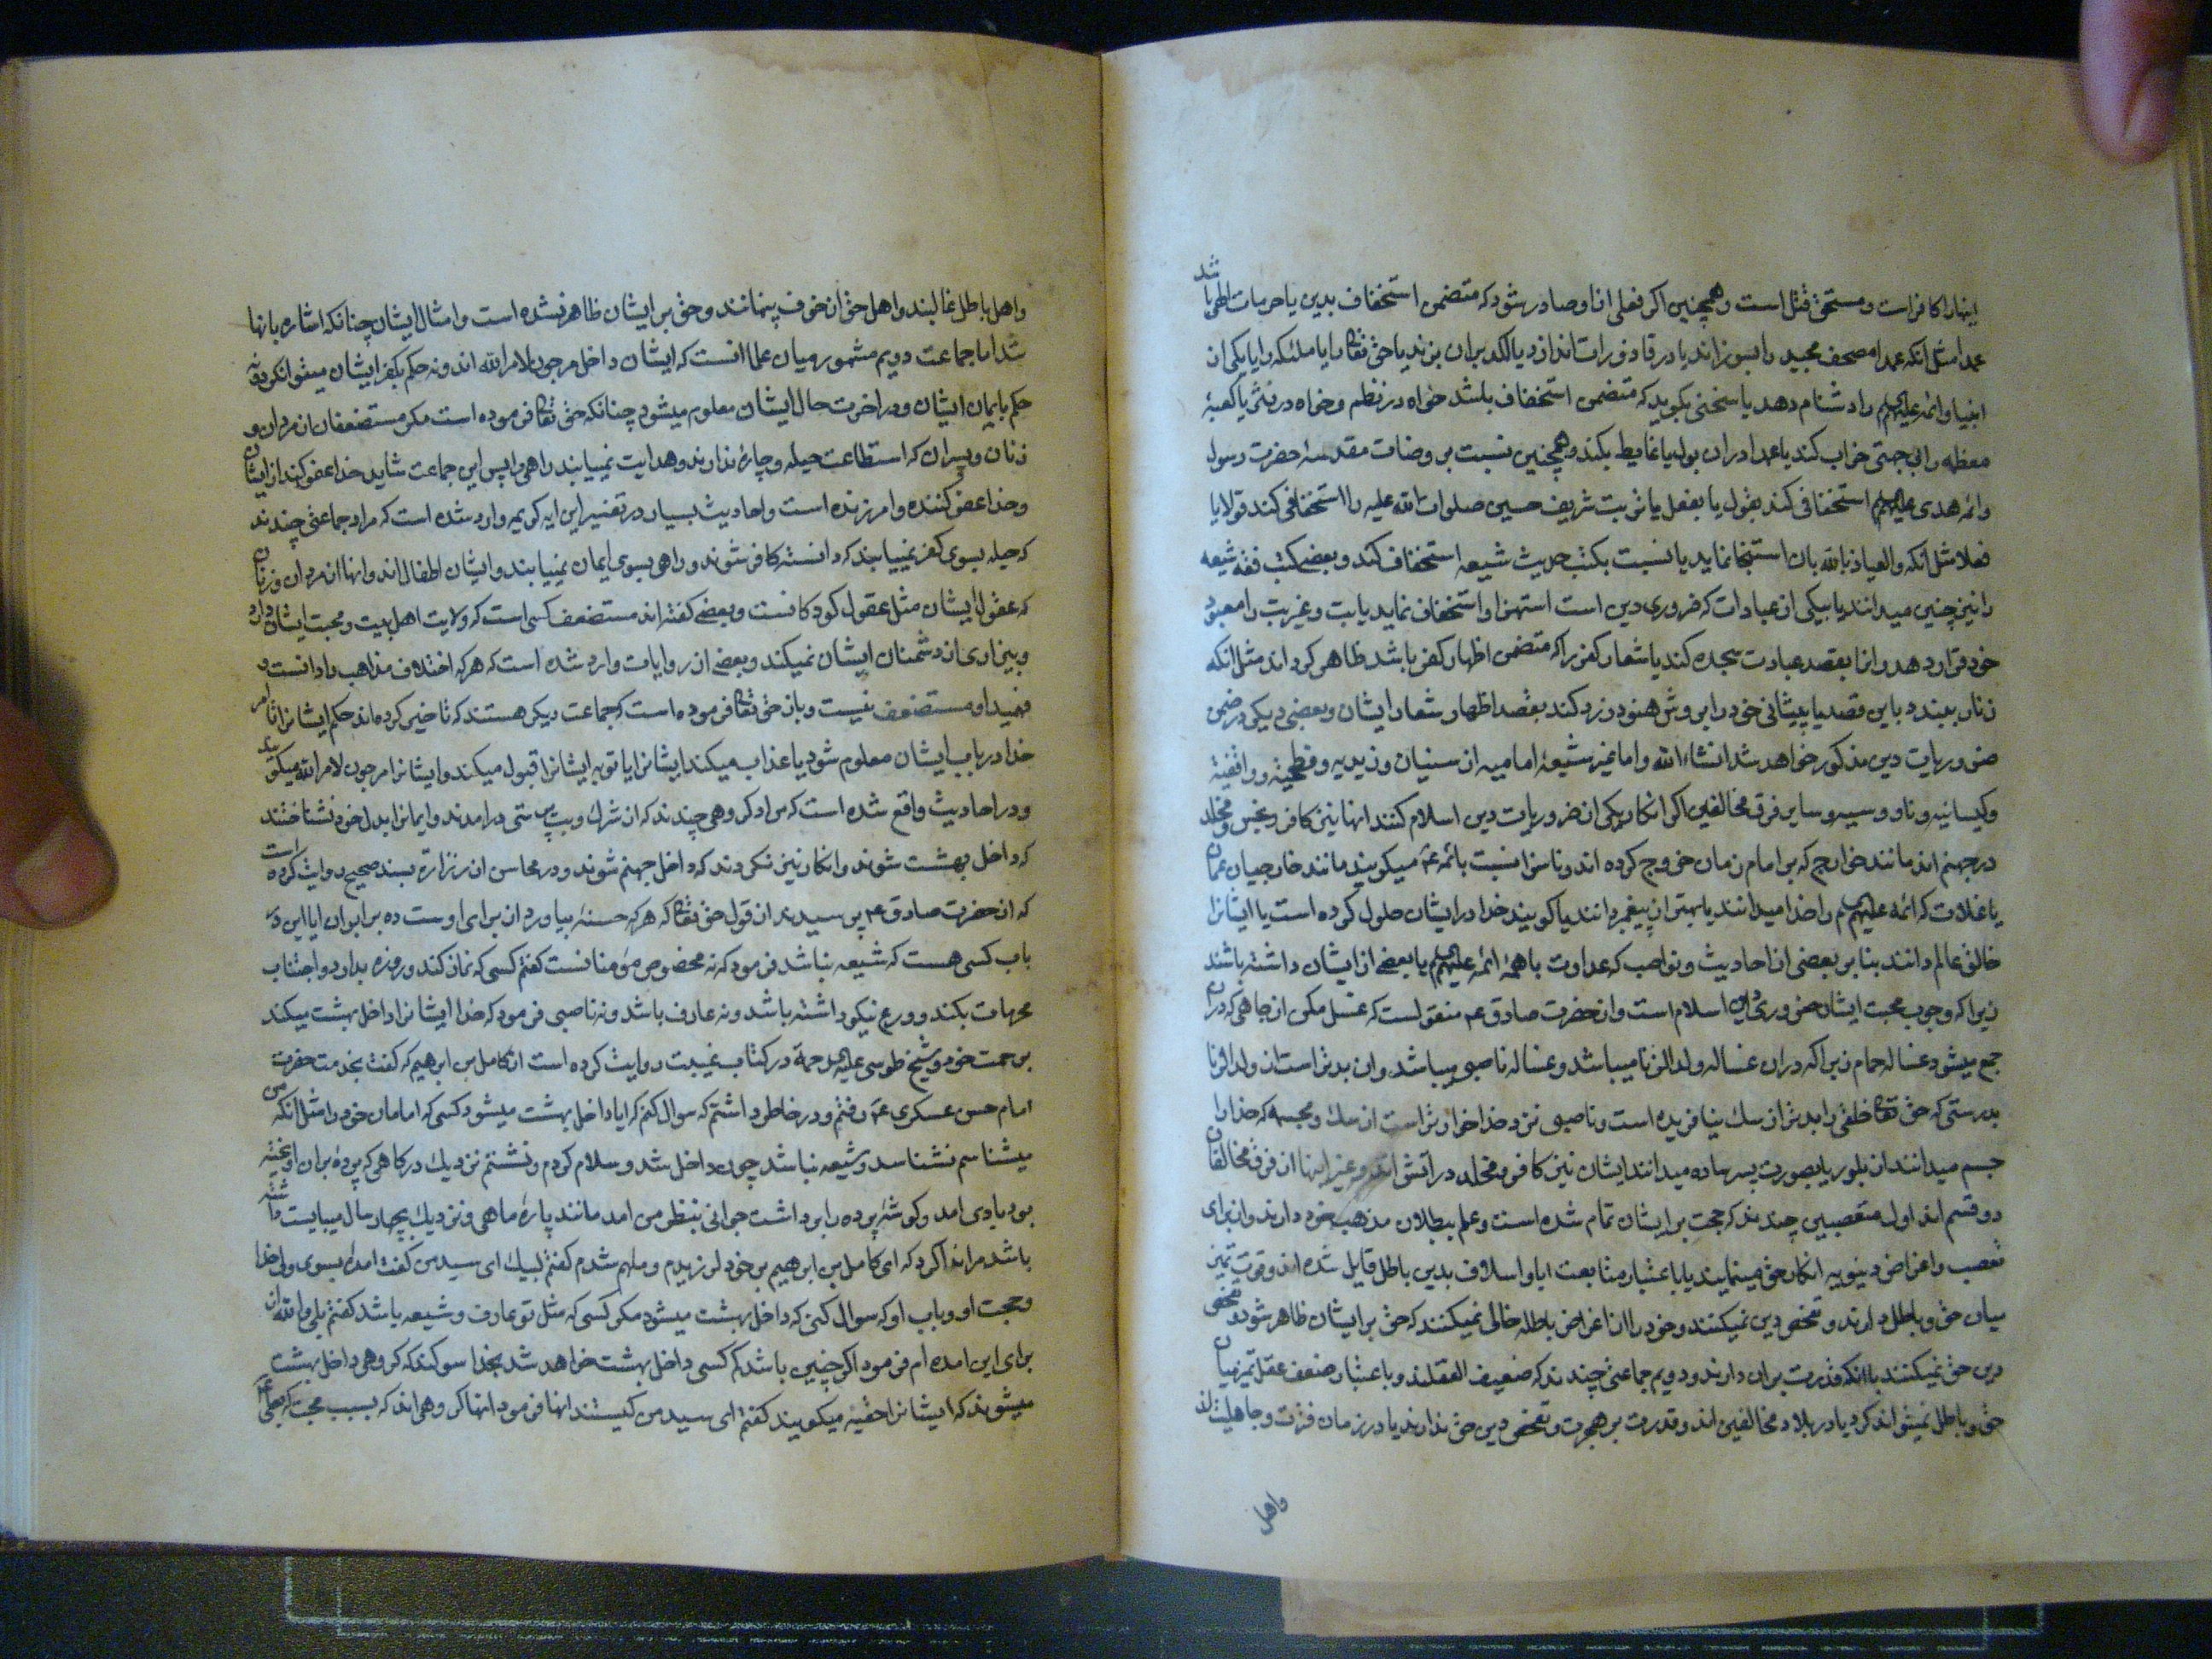 شد
اینها را کافر است و مستحق قتل است و همچنین اگر فعلی از او صادر شود که متضمن استخفاف بدین یا حرمات الهی با
عمدا مثل انکه عمدا مصحف مجید را بسوزاند یا در قاذورات اندازد یا لگد بران بزند یا حق تعالی را یا ملئکه را یا یکی از
انبیا و ائمه علیهم السلم را دشنام دهد یا سخنی بگوید که متضمن استخفاف باشد خواه در نظم و خواه در نثر یا کعبهٔ
معظمه را بی جهتی خراب کند یا عمدا دران بول یا غایط بکند و همچنین نسبت بروضات مقدسهٔ حضرت رسول
و ائمه هدی علیهم السلم استخفافی کند بقول یا بفعل یا تربت شریف حسین صلوات الله علیه را استخفافی کند قولا یا
فعلا مثل انکه و العیاذ بالله بان استنجا نماید یا نسبت بکتب حدیث شیعه استخفاف کند و بعضی کتب فقه شیعه
را نیز چنین میدانند یا بیکی از عبادات که ضروری دین است استهزا و استخفاف نماید یا بت و غیر بت را معبود
خود قرار دهد و انرا بقصد عبادت سجده کند یا شعار کفر را که متضمن اظهار کفر باشد ظاهر کرداند مثل انکه
زنار ببندد باین قصد یا پیشانی خود را بروش هنود زرد کند بقصد اظهار شعار ایشان و بعضی دیگر در ضمن
ضروریات دین مذکور خواهد شد انشاء الله و اما غیر شیعهٔ امامیه از سنیان و زیدیه و فطحیه و واقفیه
و کیسانیه و ناووسیه و سایر فرق مخالفین اگر انکار یکی از ضروریات دین اسلام کنند انها نیز کافر و نجس و مخلد
در جهنم اند مانند خوارج که بر امام زمان خروج کرده اند و ناسزا نسبت بائمه ع میگویند مانند خارجیان عمان
یا غلات که ائمه علیهم السلم را خدا میدانند یا بهتر از پیغمبر دانند یا گویند خدا در ایشان حلول کرده است یا ایشانرا
خالق عالم دانند بنا بر بعضی از احادیث و نواصب که عداوت با همهٔ ائمه علیهم السلم یا بعضی از ایشان داشته باشند
زیرا که وجوب محبت ایشان ضروری دین اسلام است و از حضرت صادق ع منقولست که غسل مکن از چاهی که دران
جمع میشود غسالهٔ حمام زیرا که دران غساله ولد الزنا میباشد و غساله ناصبی میباشد و ان بدتر است از ولد الزنا
بدرستی که حق تعالی خلقی را بدتر از سک نیافریده است و ناصبی نزد خدا خوارتر است از سک و مجسمه که خدا را
جسم میدانند از بلور یا بصورت پسر ساده میدانند ایشان نیز کافر و مخلد در اتش اند و غیر اینها از فرق مخالفان
دو قسم اند اول متعصبین چندند که حجت بر ایشان تمام شده است و علم ببطلان مذهب خود دارند و از برای
تعصب و اغراض دنیویه انکار حق مینمایند یا باعتبار متابعت ابا و اسلاف بدین باطل قایل شده اند و قوت تمیز
میان حق و باطل دارند و تفحص دین نمیکنند و خود را از اغراض باطله خالی نمیکنند که حق بر ایشان ظاهر شود و تفحص
دین حق نمیکنند با انکه قدرت بران دارند و دویم جماعتی چندند که ضعیف العقلند و باعتبار ضعف عقل تمیز میان
حق و باطل نمیتوانند کرد یا در بلاد مخالفین اند و قدرت بر هجرت و تفحص دین حق ندارند یا در زمان فترت و جاهلیت اند
واهل
و اهل باطل غالبند و اهل حق از خوف پنهانند و حق بر ایشان ظاهر نشده است و امثال ایشان چنانکه اشاره بانها
شد اما جماعت دویم مشهور میان علما انست که ایشان داخل مرجون لامر الله اند و نه حکم بکفر ایشان میتوان کرد و نه
حکم بایمان ایشان و در اخرت حال ایشان معلوم میشود چنانکه حق تعالی فرموده است مکر مستضعفان از مردان و
زنان و پسران که استطاعت حیله و چارهٔ ندارند و هدایت نمییابند راهی را پس این جماعت شاید خدا عفو کند از ایشان
و خدا عفو کننده و امرزنده است و احادیث بسیار در تفسیر این ایه کریمه وارد شده است که مراد جماعتی چندند
که حیله بسوی کفر نمییابند که دانسته کافر شوند و راهی بسوی ایمان نمییابند و ایشان اطفال اند و انها از مردان و زنان
که عقول ایشان مثل عقول کودکانست و بعضی کفته اند مستضعف کسی است که ولایت اهل بیت و محبت ایشان دارد
و بیزاری از دشمنان ایشان نمیکند و بعضی از روایات وارد شده است که هر که اختلاف مذاهب را دانست و
فهمید او مستضعف نیست و باز حق تعالی فرموده است که جماعت دیگر هستند که تاخیر کرده اند حکم ایشانرا تا امر
خدا در باب ایشان معلوم شود یا عذاب میکند ایشانرا یا توبهٔ ایشانرا قبول میکند و ایشانرا مرجون لامر الله میگویند
و در احادیث واقع شده است که مراد گروهی چندند که از شرک و بت پرستی درامدند و ایمانرا بدل خود نشناختند
که داخل بهشت شوند و انکار نیز نکردند که داخل جهنم شوند و در محاسن از زراره بسند صحیح روایت کرده است
که از حضرت صادق ع پرسیدند از قول حق تعالی که هر که حسنهٔ بیاورد از برای اوست ده برابر ان ایا این در
باب کسی هست که شیعه نباشد فرمود که نه مخصوص مؤمنانست کفتم کسی که نماز کند و روزه بدارد و اجتناب
محرمات بکند و ورع نیکو داشته باشد و نه عارف باشد و نه ناصبی فرمود که خدا ایشانرا داخل بهشت میکند
برحمت خود و شیخ طوسی علیه الرحمة در کتاب غیبت روایت کرده است از کامل بن ابرهیم که کفت بخدمت حضرت
امام حسن عسکری ع رفتم و در خاطر داشتم که سوال کنم که ایا داخل بهشت میشود کسی که امامان خود را مثل انکه من
میشناسم نشناسد و شیعه نباشد چون داخل شد و سلام کردم و نشستم نزدیک درگاهی که پردهٔ بران اویخته
بود بادی امد و کوشهٔ پرده را برداشت جوانی بنظر من امد مانند پارهٔ ماهی و نزدیک بچهار سال میبایست داشته
باشد مرا ندا کرد که ای کامل بن ابرهیم بر خود لرزیدم و ملهم شدم کفتم لبیک ای سید من کفت امدهٔ بسوی ولی خدا
و حجت او و باب او که سوال کنی که داخل بهشت میشود مکر کسی که مثل تو عارف و شیعه باشد کفتم بلی والله از
برای این امده ام فرمود اکر چنین باشد کم کسی داخل بهشت خواهد شد بخدا سوکند که گروهی داخل بهشت
میشوند که ایشانرا حقیه میگویند کفتم ای سید من کیستند انها فرمود انها گروهی اند که بسبب محبت که بعلی ع